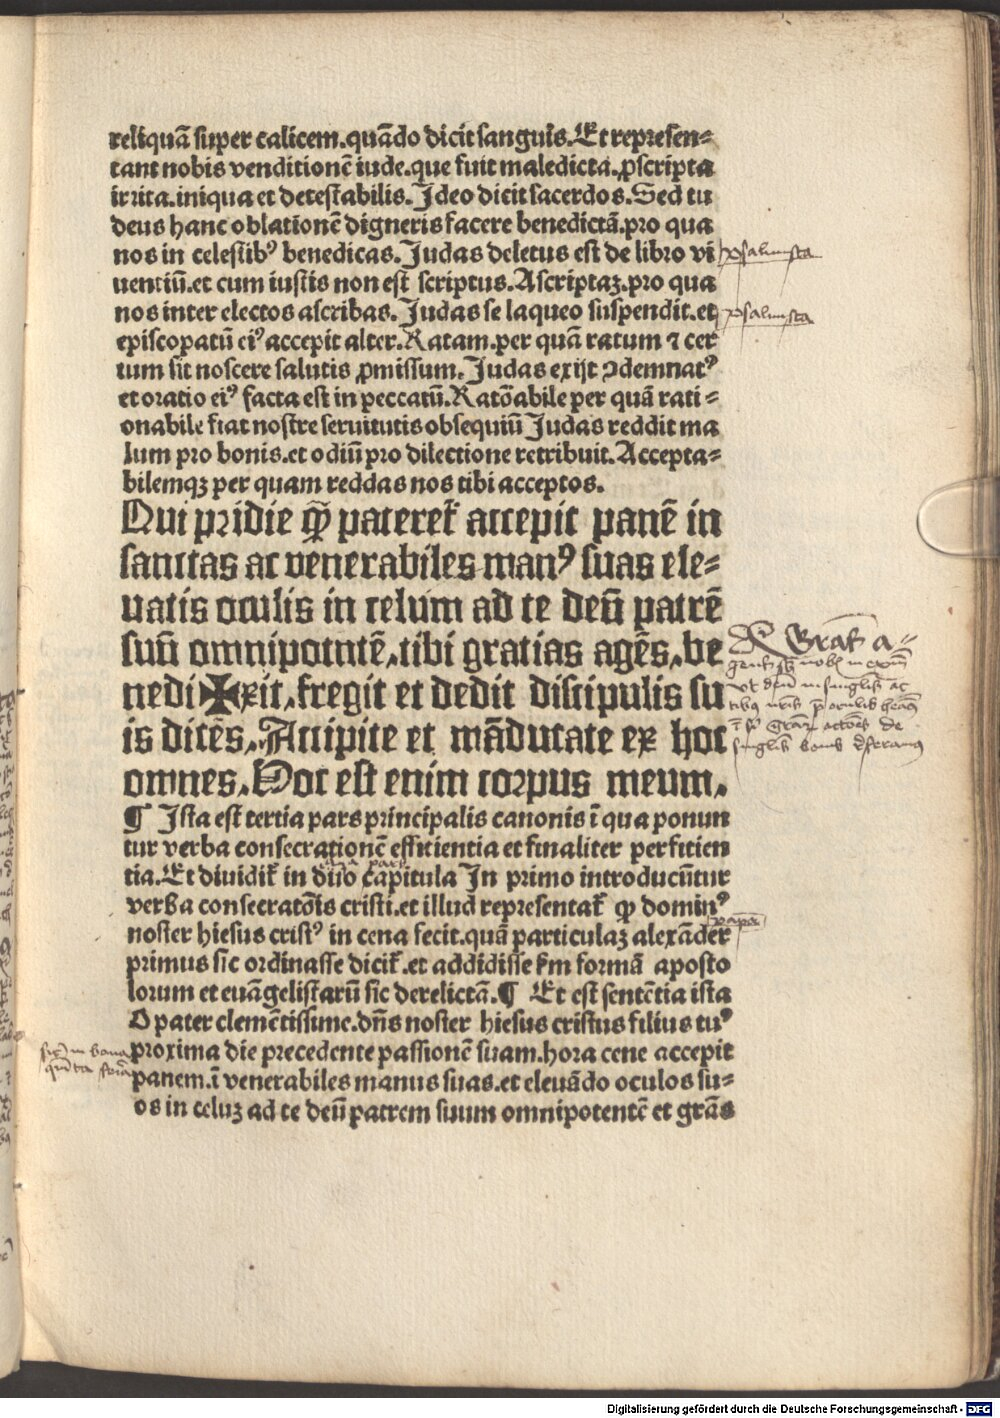 reliquā super calicem.quādo dicit sanguis.Et represen=
tant nobis venditionē iude.que fuit maledicta.ꝓscripta
irrita.iniqua et detestabilis.Ideo dicit sacerdos.Sed tu
deus hanc oblationē digneris facere benedictā.pro qua
nos in celestibꝰ benedicas.Judas deletus est de libro vi
uentiū.et cum iustis non est scriptus.Ascriptaꝫ.pro qua
nos inter electos ascribas.Judas se laqueo suspendit.et
episcopatū eiꝰ accepit alter.Ratam.per quā ratum ⁊ cer
tum sit noscere salutis ꝓmissum.Judas exijt ꝯdemnatꝰ
et oratio eiꝰ facta est in peccatū.Ratōabile per quā rati=
onabile fiat nostre seruitutis obsequiū Judas reddit ma
lum pro bonis.et odiū pro dilectione retribuit.Accepta=
bilemqꝫ per quam reddas nos tibi acceptos.
Qui pridie qͫ pateret̃ accepit panē in
sanctas ac venerabiles manꝰ suas ele=
uatis oculis in celum ad te deū patrē
suū omnipotntē.tibi gratias agēs.be
nedi✠xit.fregit et dedit discipulis su
is dicēs.Accipite et māducate ex hoc
omnes.Hoc est enim corpus meum.
¶ Ista est tertia pars principalis canonis ī qua ponun
tur verba consecrationē efficientia et finaliter perficien
tia.Et diuidit̃ in duo capitula In primo introducūtur
verba consecratōis cristi.et illud representat̃ ꝙ dominꝰ
noster hiesus cristꝰ in cena fecit.quā particulaꝫ alexāder
primus sic ordinasse dicit̃.et addidisse s̄m formā aposto
lorum et euāgelistarū sic derelictā.¶ Et est sentētia ista
O pater clemētissime.dn̄s noster hiesus cristus filius tuꝰ
proxima die precedente passionē suam.hora cene accepit
panem.ī venerabiles manus suas.et eleuādo oculos su=
os in celuꝫ ad te deū patrem suum omnipotentē et grās
psalmista
psalmista
papa
Digitalisierung gefördert durch die Deutsche Forschungsgemeinschaft - DFG